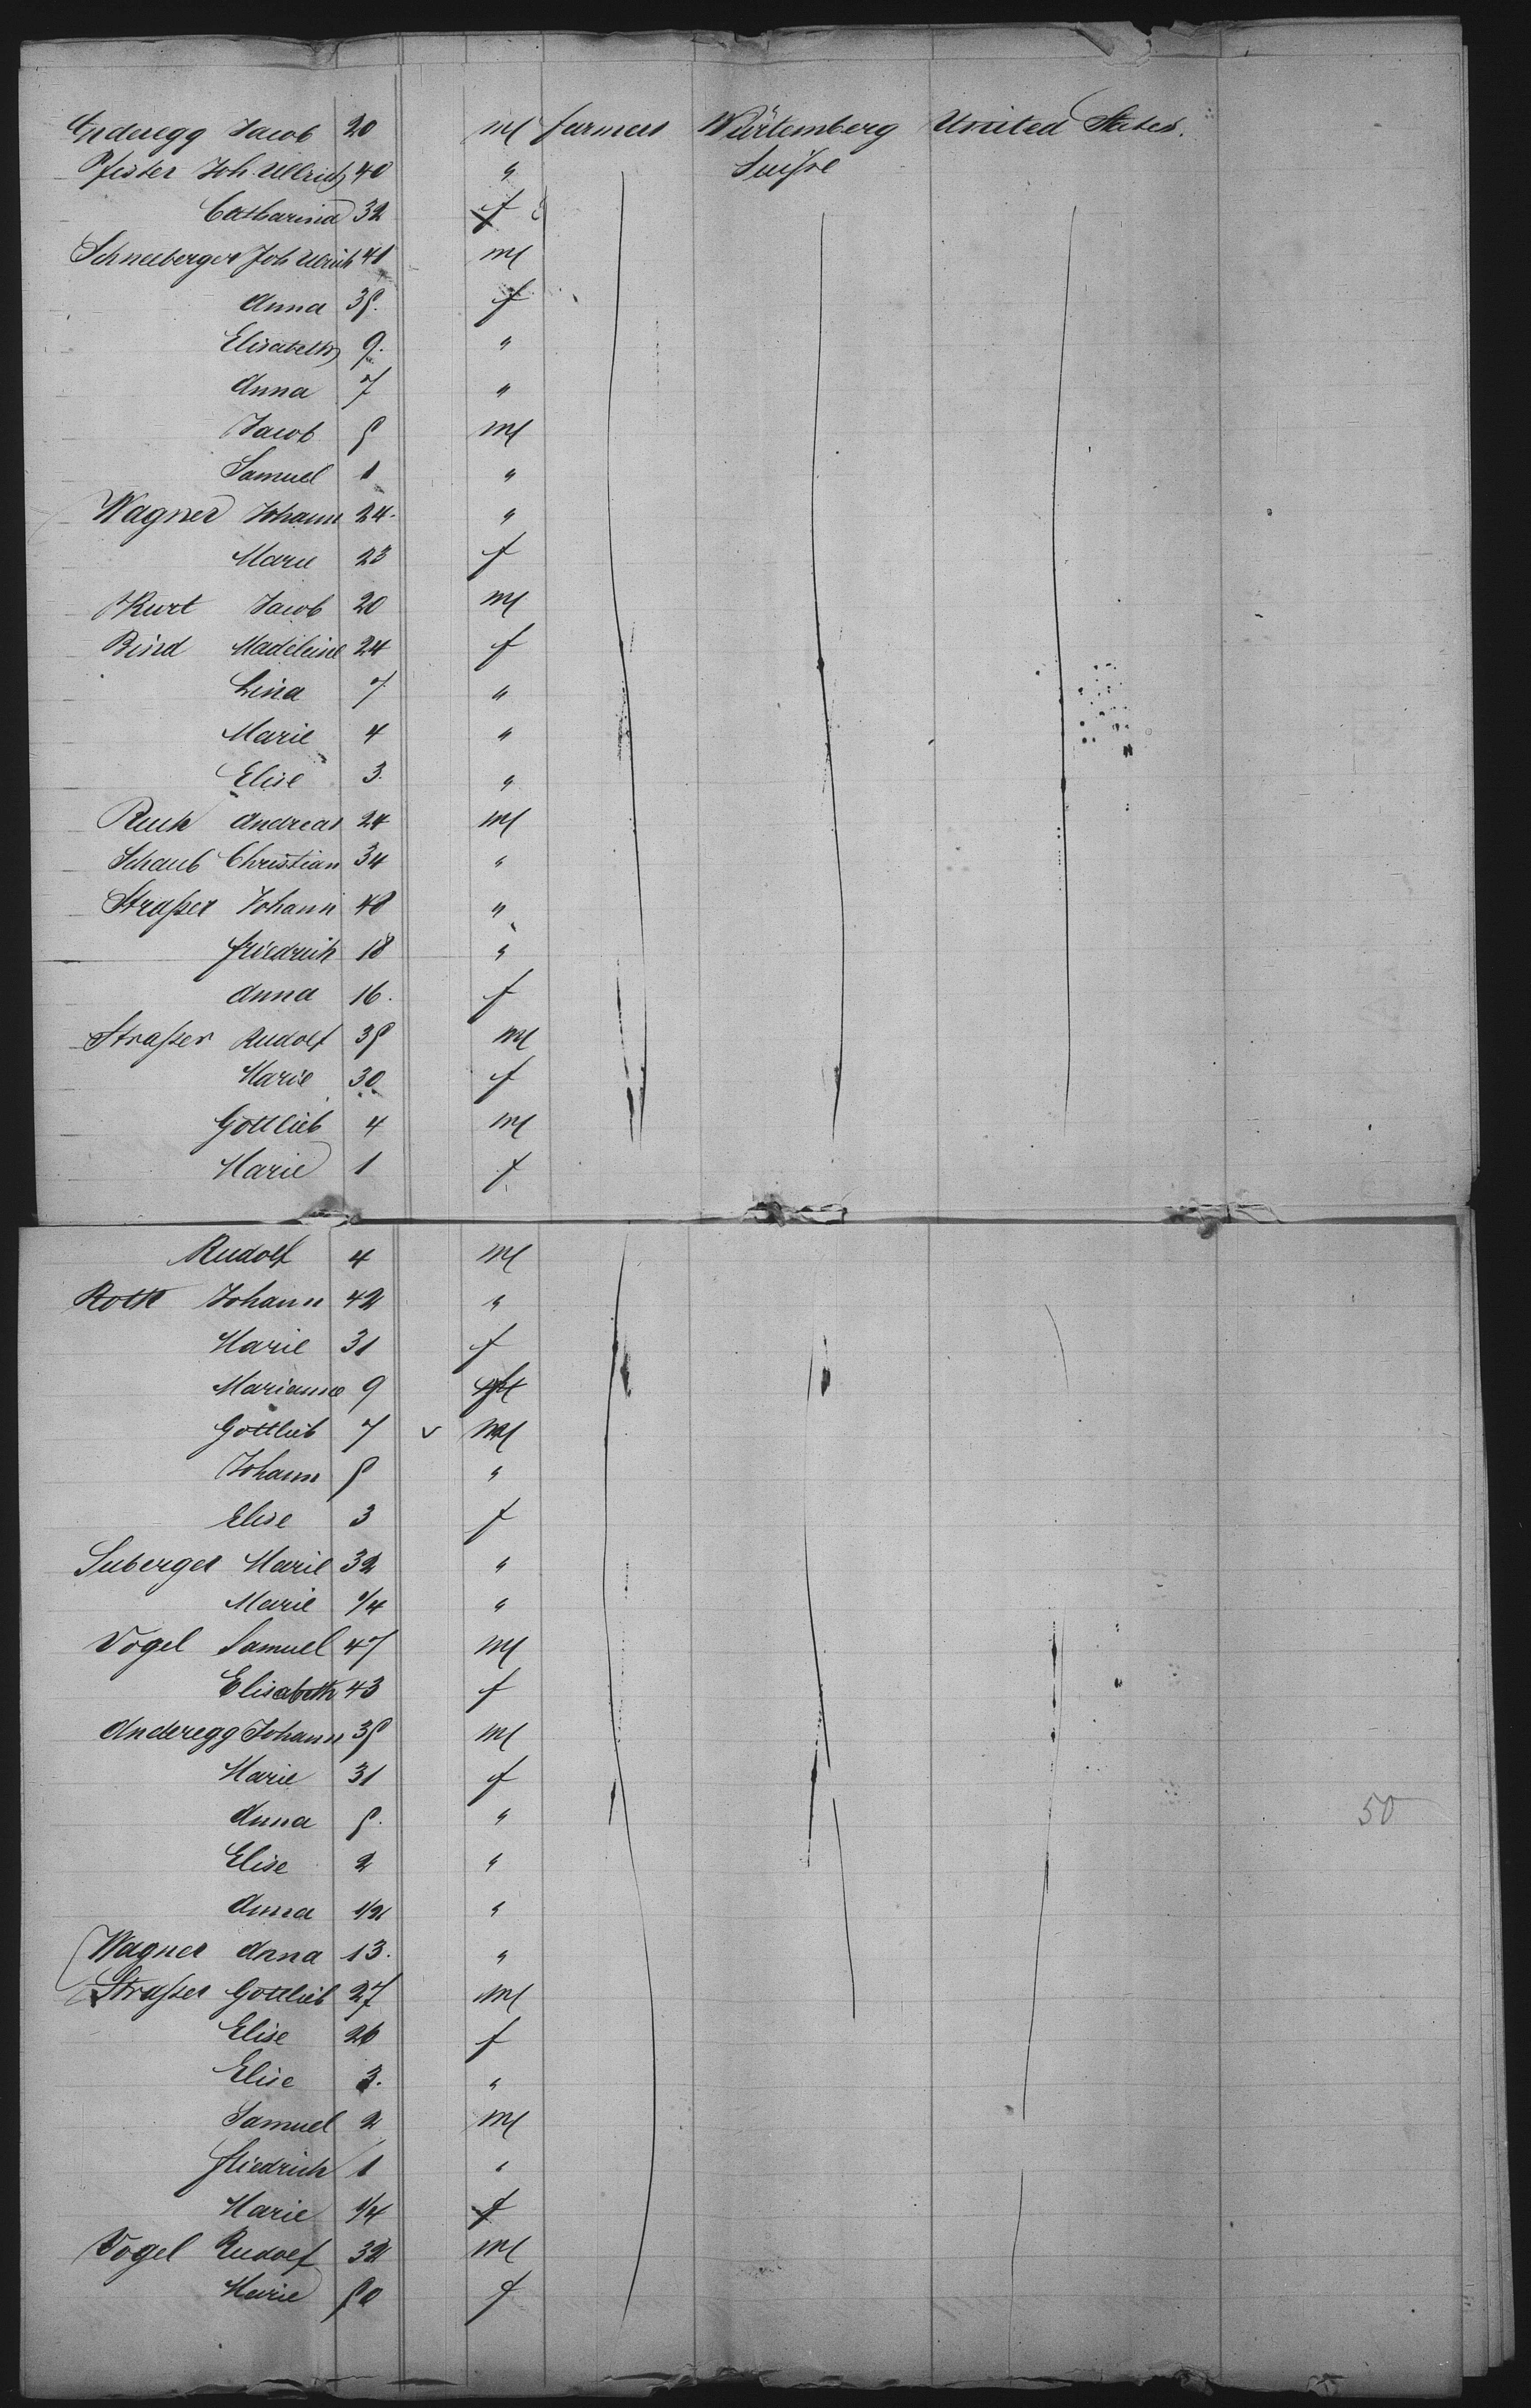 Enderegg Jacob 20 M farmers Würtemberg United States.
Pfister Joh. Ullrich 40 " Suisse
Catharina 32 f
Schneeberger Joh Ulrich 41 M
Anna 35. f
Elisabeth 9. "
Anna 7 "
Jacob 5 M
Samuel 1 "
Wagner Johann 24. "
Marie 23 f
Kurt Jacob 20 M
Bind Madeleine 24 f
Lina 7 "
Marie 4 "
Elise 3. "
Ruch Andreas 24 M
Schaub Christian 34 "
Straßer Johann 48 "
Friedrich 18 "
Anna 16. f
Straßer Rudolf 35 M
Marie 30 f
Gottlieb 4 M
Marie 1 f
Rudolf 4 M
Roth Johann 42 "
Marie 31 f
Marianne 9 f
Gottlieb 7 v M
Johann 5 "
Elise 3 f
Suberger Marie 32 "
Marie 1/4 "
Vogel Samuel 47 M
Elisabeth 43 f
Anderegg Johann 35 M
Marie 31 f
Anna 5. " 50
Elise 2 "
Anna 1/2 "
Wagner Anna 13. "
Straßer Gottlieb 27 M
Elise 26 f
Elise 3. "
Samuel 2 M
Friedrich 1 "
Marie 1/4 f
Vogel Rudolf 32 M
Marie 50 f